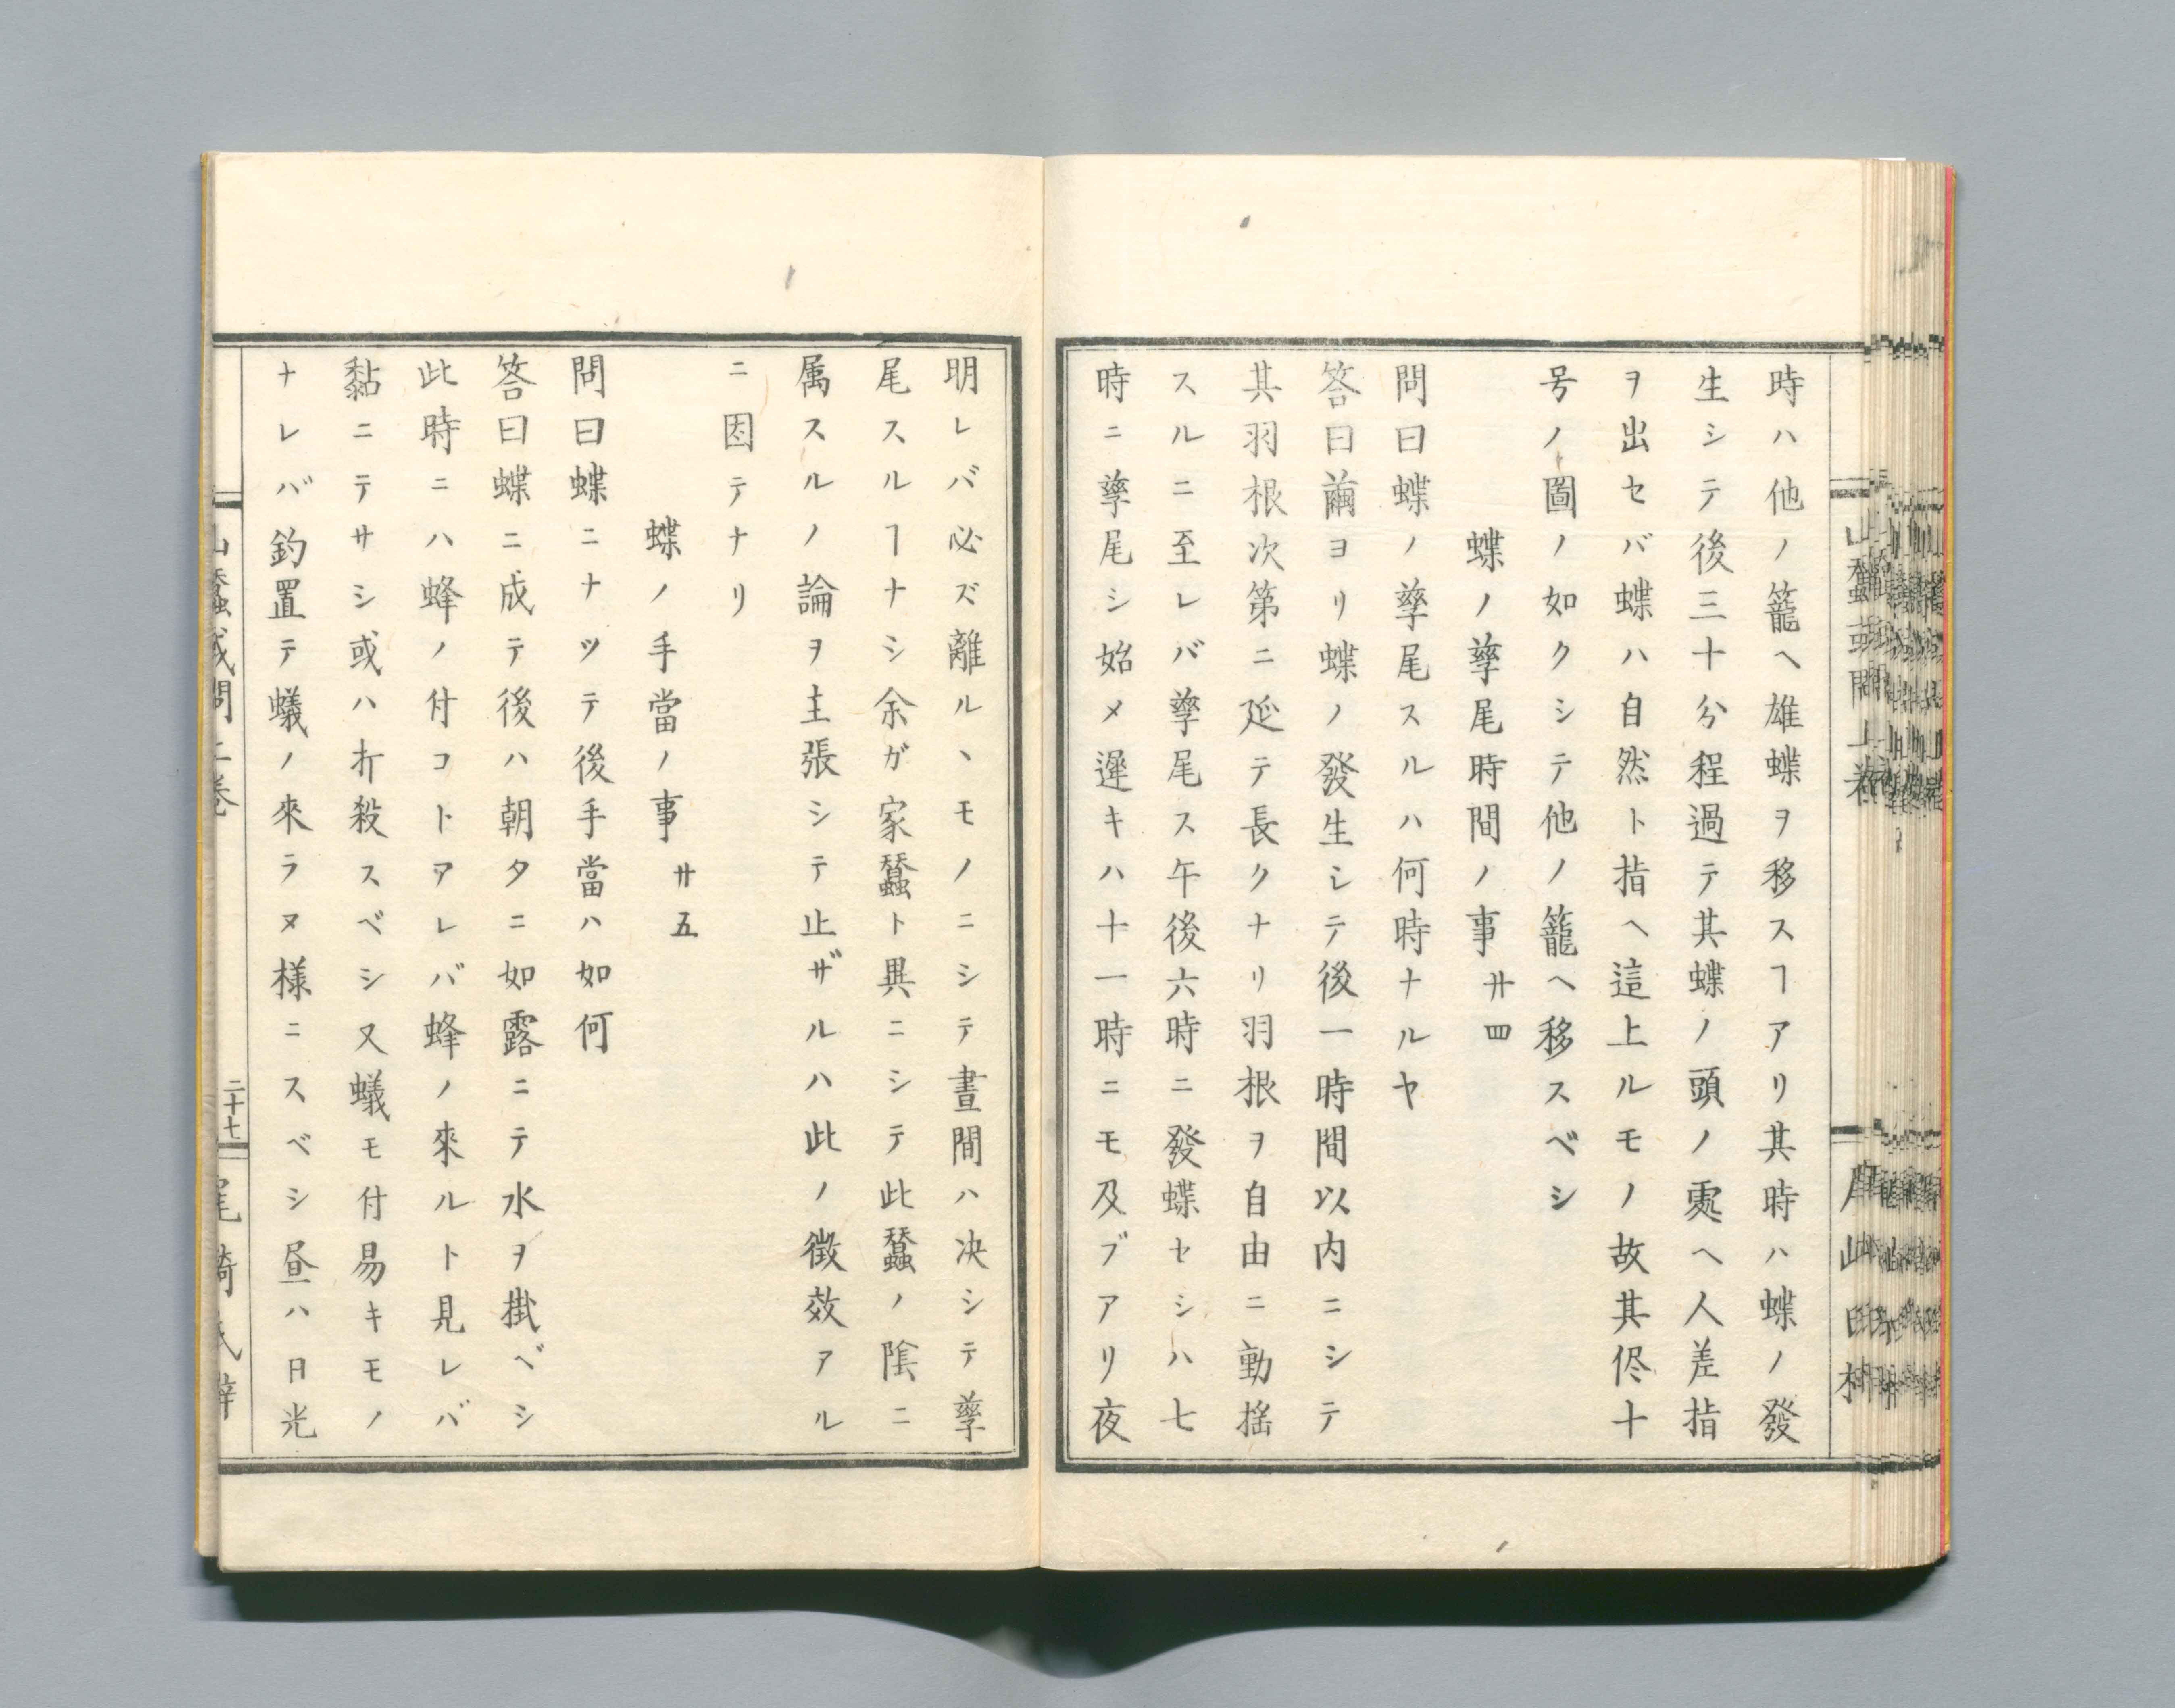 時ハ他ノ籠ヘ雄蝶ヲ移スヿアリ其時ハ蝶ノ發
生シテ後三十分程過テ其蝶ノ頭ノ處ヘ人差指
ヲ出セバ蝶ハ自然ト指ヘ這上ルモノ故其侭十
号ノ圖ノ如クシテ他ノ籠ヘ移スベシ
蝶ノ孳尾時間ノ事 廿四
問曰蝶ノ孳尾スルハ何時ナルヤ
答曰繭ヨリ蝶ノ發生シテ後一時間以内ニシテ
其羽根次第ニ延テ長クナリ羽根ヲ自由ニ動揺
スルニ至レバ孳尾ス午後六時ニ發蝶セシハ七
時ニ孳尾シ始メ遲キハ十一時ニモ及ブアリ夜
明レバ必ズ離ルヽモノニシテ晝間ハ决シテ孳
尾スルヿナシ余ガ家蠶ト異ニシテ此蠶ノ陰ニ
属スルノ論ヲ主張シテ止ザルハ此ノ徴效アル
ニ因テナリ
蝶ノ手當ノ事 廿五
問曰蝶ニナツテ後手當ハ如何
答曰蝶ニ成テ後ハ朝夕ニ如露ニテ水ヲ掛ベシ
此時ニハ蜂ノ付コトアレバ蜂ノ來ルト見レバ
黐ニテサシ或ハ折殺スベシ又蟻モ付易キモノ
ナレバ釣置テ蟻ノ來ラヌ様ニスベシ昼ハ日光
二十七